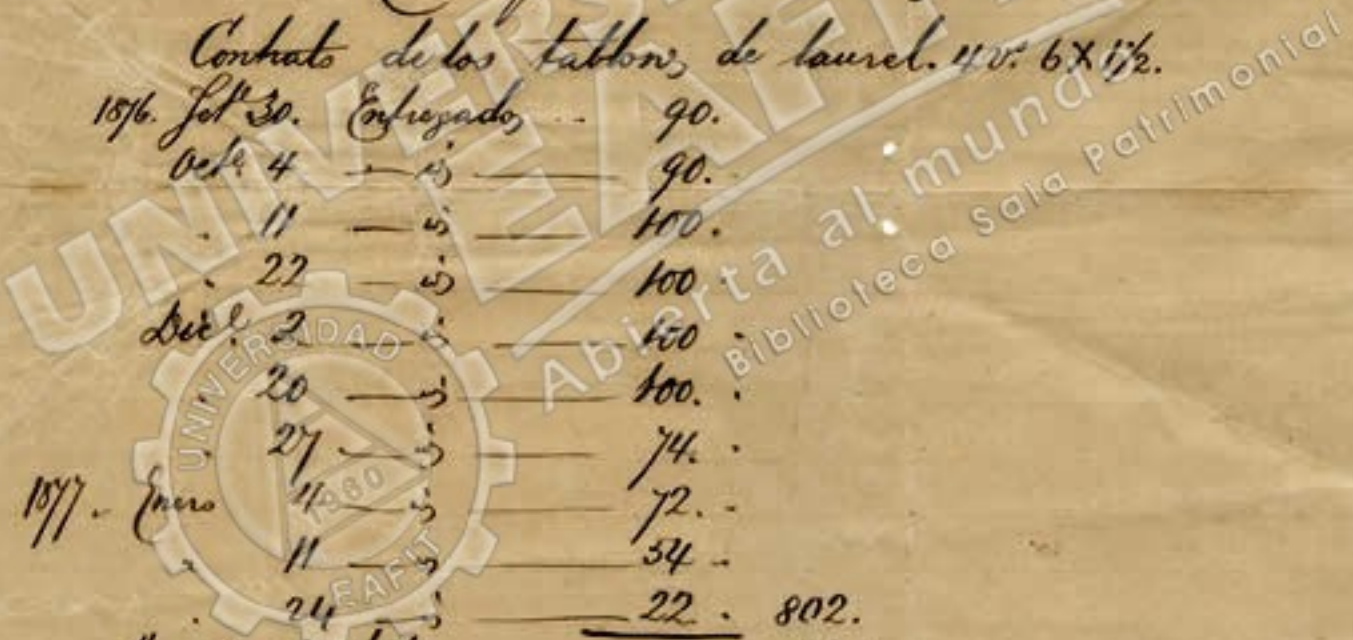 Contrato de los tablones de laurel. 4 vs. 6 X 1½.
1876. Setе 30. Entregados .. 90.
Octe 4 — id — 90.
" 11 — id — 100.
" 22 — id — 100
Dice. 2 — id — 100
" 20 — id — 100.
" 27 — id — 74.
1877. Enero 4 — id — 72.
" 11 — id — 54
" 24 — id — 22. 802.
UNIVERSIDAD
EAFIT
Abierta al mundo
Biblioteca Sala Patrimonial
UNIVERSIDAD
1960
EAFIT